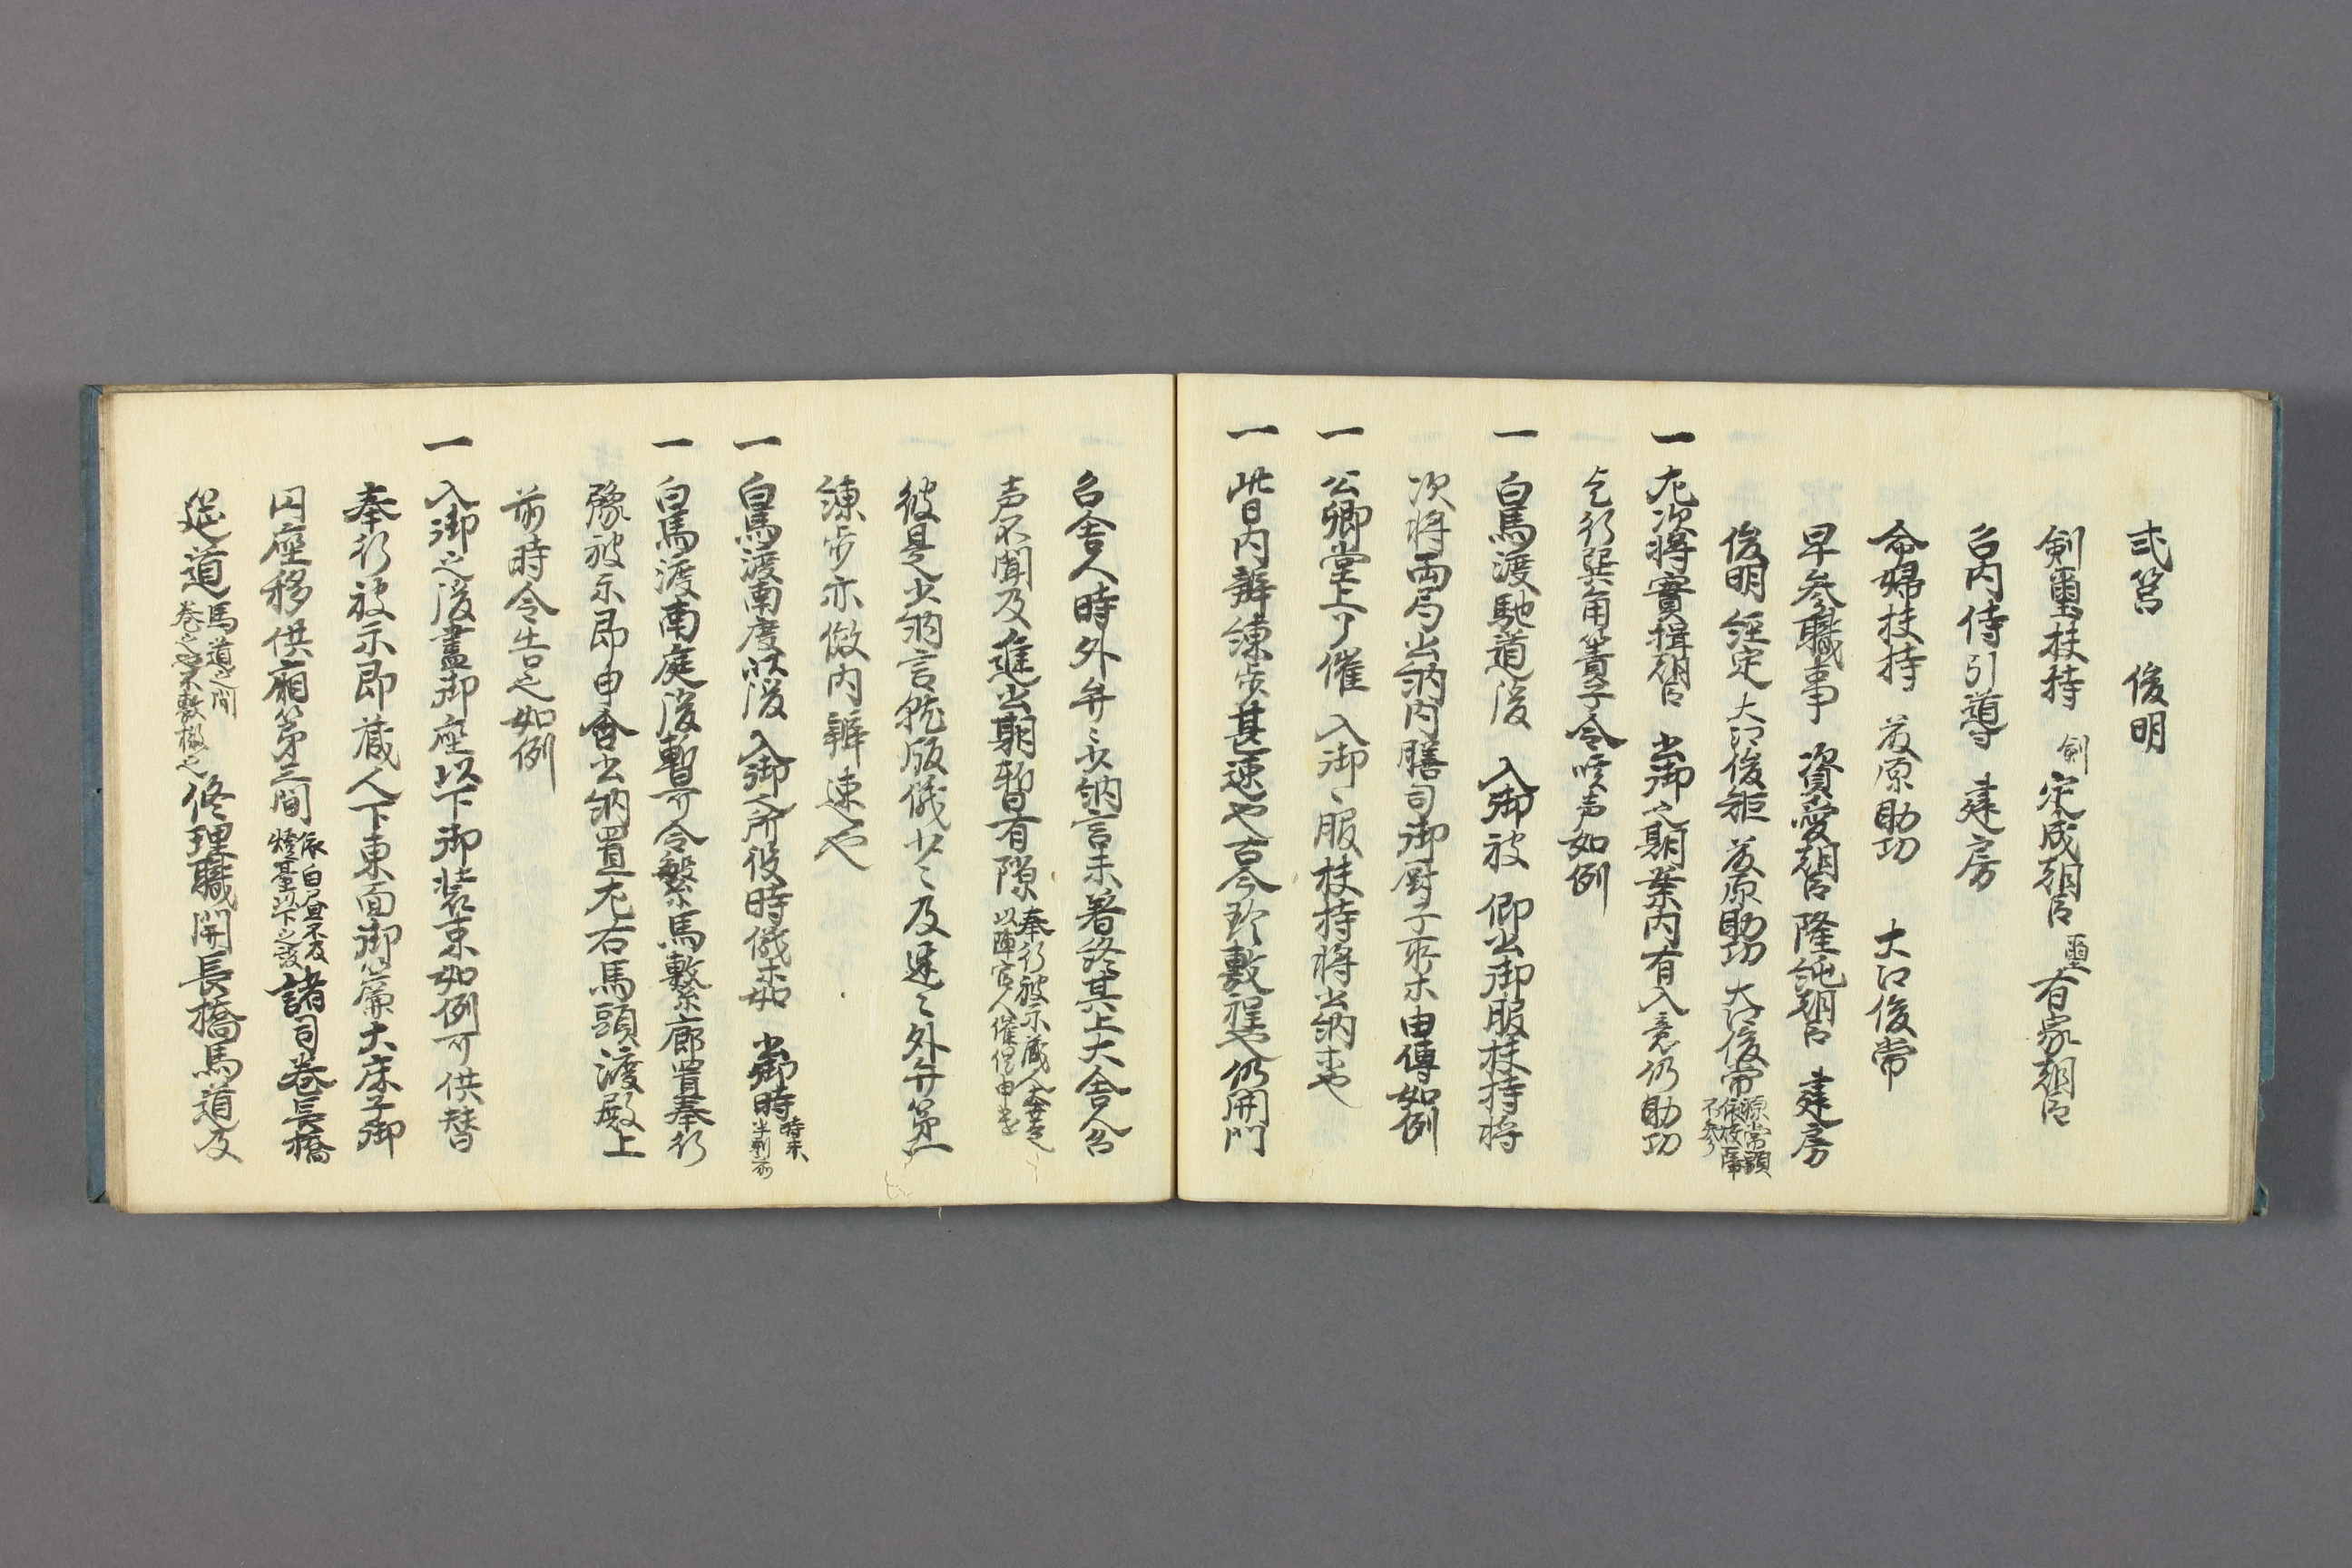 弍筥　俊明
剣璽扶持　剣 定成朝臣　璽 有家朝臣
召内侍引導　建房
命婦扶持　藤原助功　大江俊常
早参職事　資愛朝臣　隆純朝臣　建房
俊明　経定　大江俊矩　藤原助功　大江俊常 源常顕 依故障 不参
一 左次将實揖朝臣　出御之期案内有入意仍助功
乞行巽角簀子令咳声如例
一 白馬渡馳道後　入御被　仰出御服扶持将
次将両局出納内膳司御厨子所等由傳如例
一 公卿堂上了催　入御、服扶持将出納等也
一 此日内辨練歩甚速也古今珍敷程也仍開門
召舎人時外弁々少納言未著終其上大舎人召
声不聞及進出期暫有隙 奉行被示蔵人 以陣官人催促由也
彼是少納言就版儀少々及遅々外弁第一
練歩亦倣内辨速也
一 白馬渡南庭以後　入御入所役時儀等如　出御時 時未半刻前
一 白馬渡南庭後暫可令繋馬繋廊置奉行
豫被示即申含出納置左右馬頭渡殿上
前時令告之如例
一 入御之後晝御座以下御装束如例可供替
奉行被示即蔵人下東面御簾大床子御
円座移供廂第三間 依白昼不及 燈臺以下之設 諸司巻長橋
筵道 馬道之間 巻之也不敷檄之 修理職開長橋馬道及